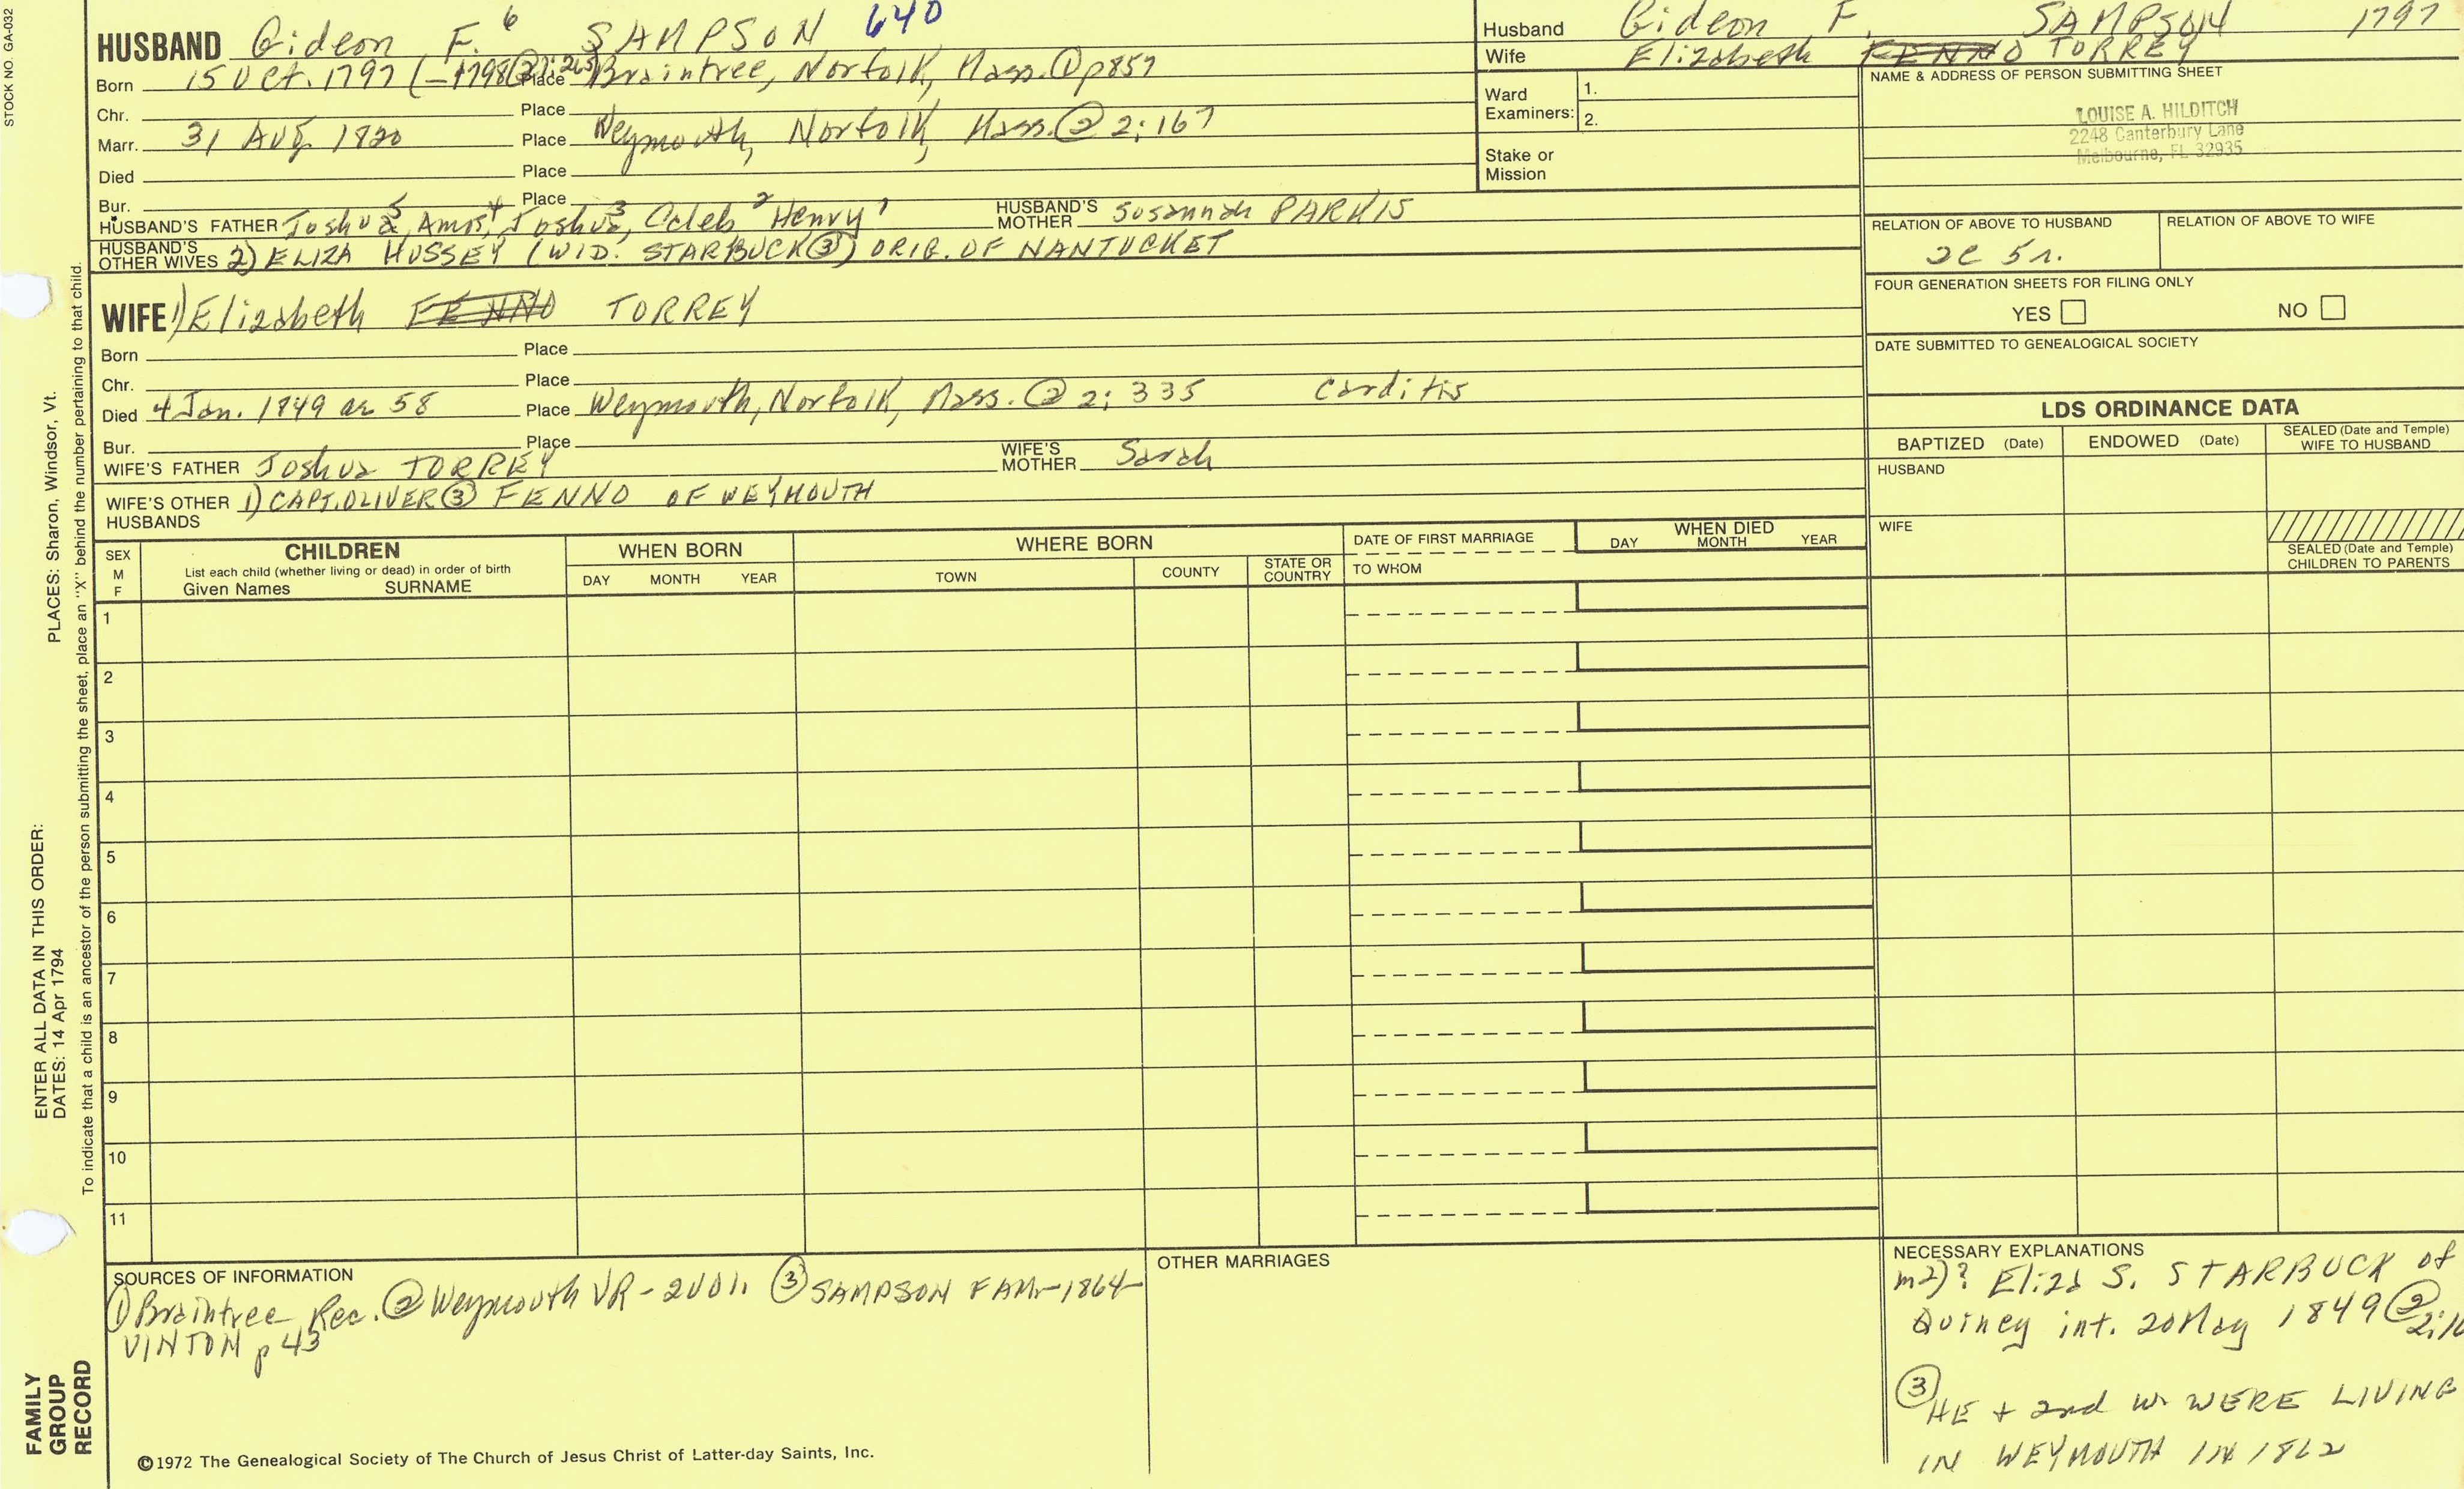 STOCK NO. GA-032
HUSBAND Gideon F.⁶ SAMPSON 640
Born 15 Oct. 1797 (-1798② 2:265) Place Braintree, Norfolk, Mass. ① p857
Chr. Place
Marr. 31 Aug 1820 Place Weymouth, Norfolk, Mass. ② 2:167
Died Place
Bur. Place
HUSBAND'S FATHER Joshua⁵, Amos⁴, Joshua³, Caleb² Henry¹ HUSBAND'S MOTHER Susannah PARKIS
HUSBAND'S OTHER WIVES 2) ELIZA HUSSEY (WID. STARBUCK③) ORIG. OF NANTUCKET
WIFE 1) Elizabeth FENNO TORREY
Born Place
Chr. Place
Died 4 Jan. 1849 ae 58 Place Weymouth, Norfolk, Mass. ② 2:335 Carditis
Bur. Place
WIFE'S FATHER Joshua TORREY WIFE'S MOTHER Sarah
WIFE'S OTHER HUSBANDS 1) CAPT. OLIVER③ FENNO OF WEYMOUTH
Husband Gideon F. SAMPSON 1797
Wife Elizabeth FENNO TORREY
Ward Examiners: 1.
2.
Stake or Mission
NAME & ADDRESS OF PERSON SUBMITTING SHEET
LOUISE A. HILDITCH
2248 Canterbury Lane
Melbourne, FL 32935
RELATION OF ABOVE TO HUSBAND RELATION OF ABOVE TO WIFE
2c 5r.
FOUR GENERATION SHEETS FOR FILING ONLY
YES NO
DATE SUBMITTED TO GENEALOGICAL SOCIETY
LDS ORDINANCE DATA
BAPTIZED (Date) ENDOWED (Date) SEALED (Date and Temple) WIFE TO HUSBAND
HUSBAND
WIFE
SEALED (Date and Temple) CHILDREN TO PARENTS
SEX M F
CHILDREN
List each child (whether living or dead) in order of birth
Given Names SURNAME
WHEN BORN
DAY MONTH YEAR
WHERE BORN
TOWN COUNTY STATE OR COUNTRY
DATE OF FIRST MARRIAGE
TO WHOM
WHEN DIED
DAY MONTH YEAR
1
2
3
4
5
6
7
8
9
10
11
SOURCES OF INFORMATION
① Braintree Rec. ② Weymouth VR - 2 vol. ③ SAMPSON FAM - 1864 -
VINTON p 43
OTHER MARRIAGES
NECESSARY EXPLANATIONS
m2)? Eliza S. STARBUCK of
Quincy int. 20 May 1849 ②
③ HE + 2nd w. WERE LIVING
IN WEYMOUTH IN 1862
©1972 The Genealogical Society of The Church of Jesus Christ of Latter-day Saints, Inc.
FAMILY GROUP RECORD
ENTER ALL DATA IN THIS ORDER:
DATES: 14 Apr 1794
PLACES: Sharon, Windsor, Vt.
To indicate that a child is an ancestor of the person submitting the sheet, place an "X" behind the number pertaining to that child.